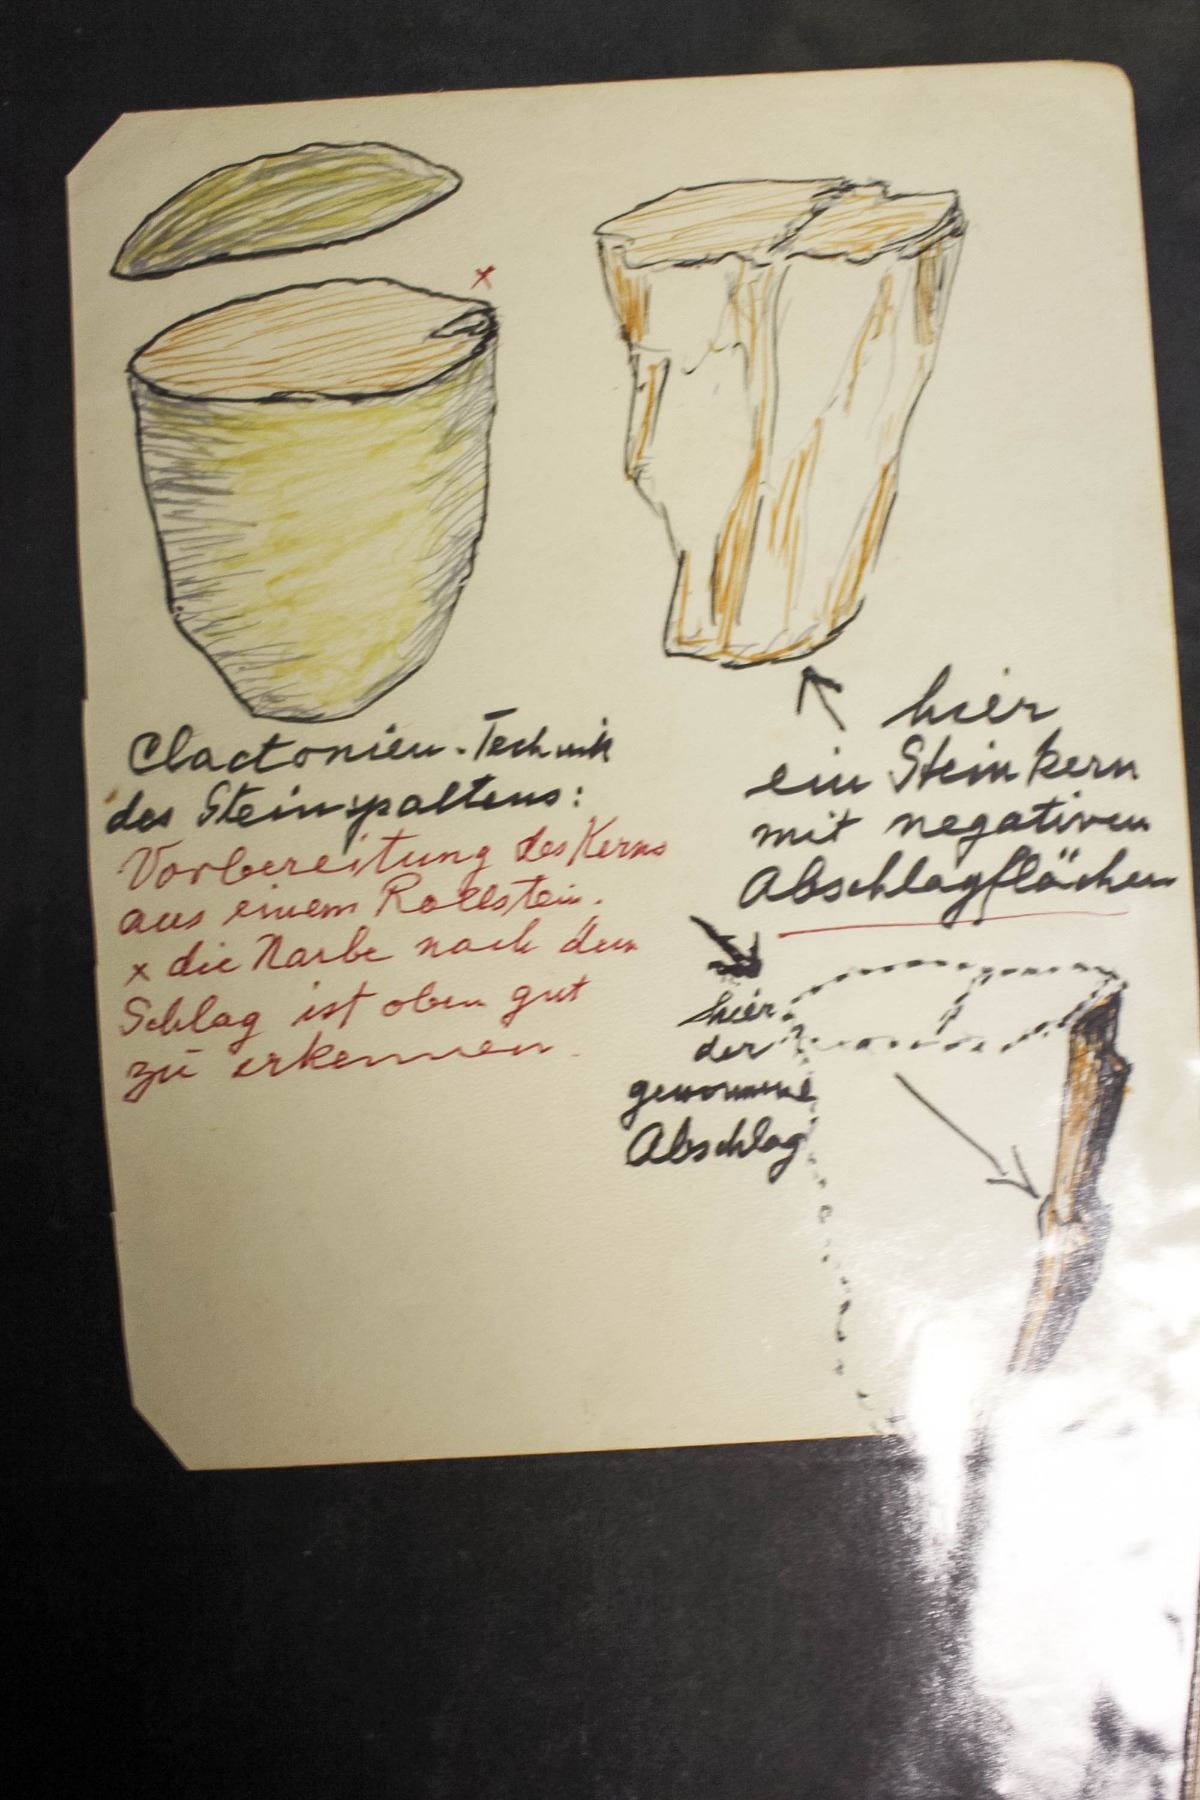 x
Clactonien-Technik
des Steinspaltens:
Vorbereitung des Kerns
aus einem Rollstein.
x die Narbe nach dem
Schlag ist oben gut
zu erkennen.
hier
ein Steinkern
mit negativen
Abschlagflächen
hier
der
gewonnene
Abschlag